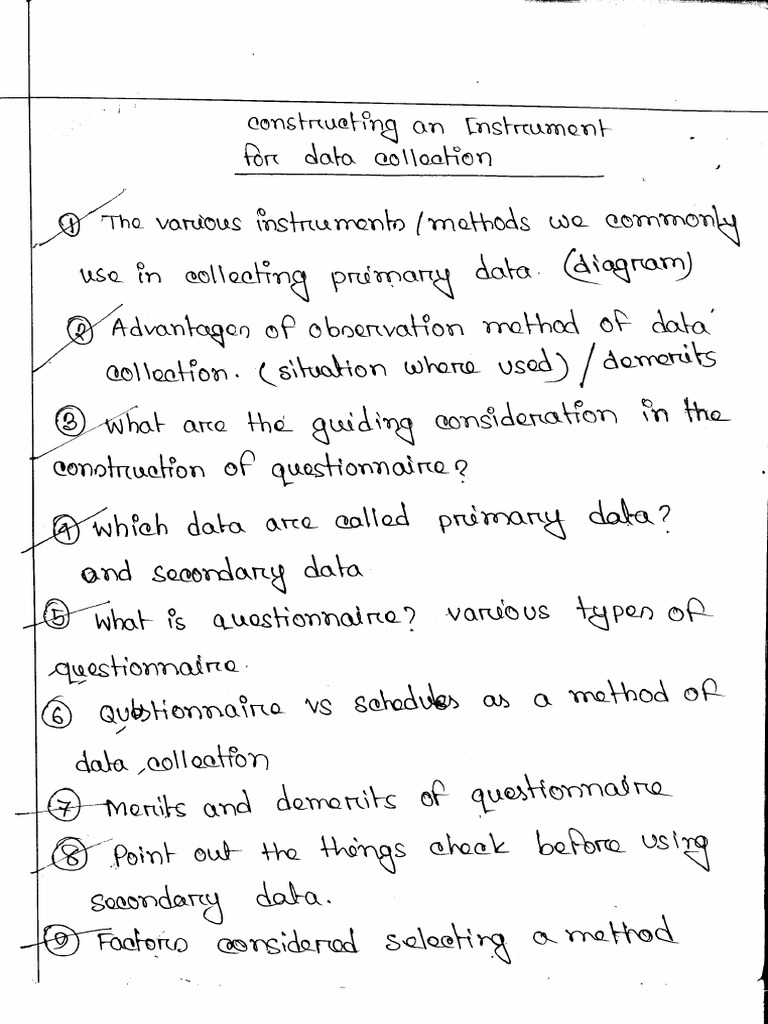 constructing an Instrument
for data collection
① The various instruments / methods we commonly
use in collecting primary data. (diagram)
② Advantages of observation method of data
collection. (situation where used) / demerits
③ What are the guiding consideration in the
construction of questionnaire?
④ Which data are called primary data?
and secondary data
⑤ What is questionnaire? various types of
questionnaire.
⑥ Questionnaire vs schedules as a method of
data collection
⑦ Merits and demerits of questionnaire
⑧ Point out the things check before using
secondary data.
⑨ Factors considered selecting a method